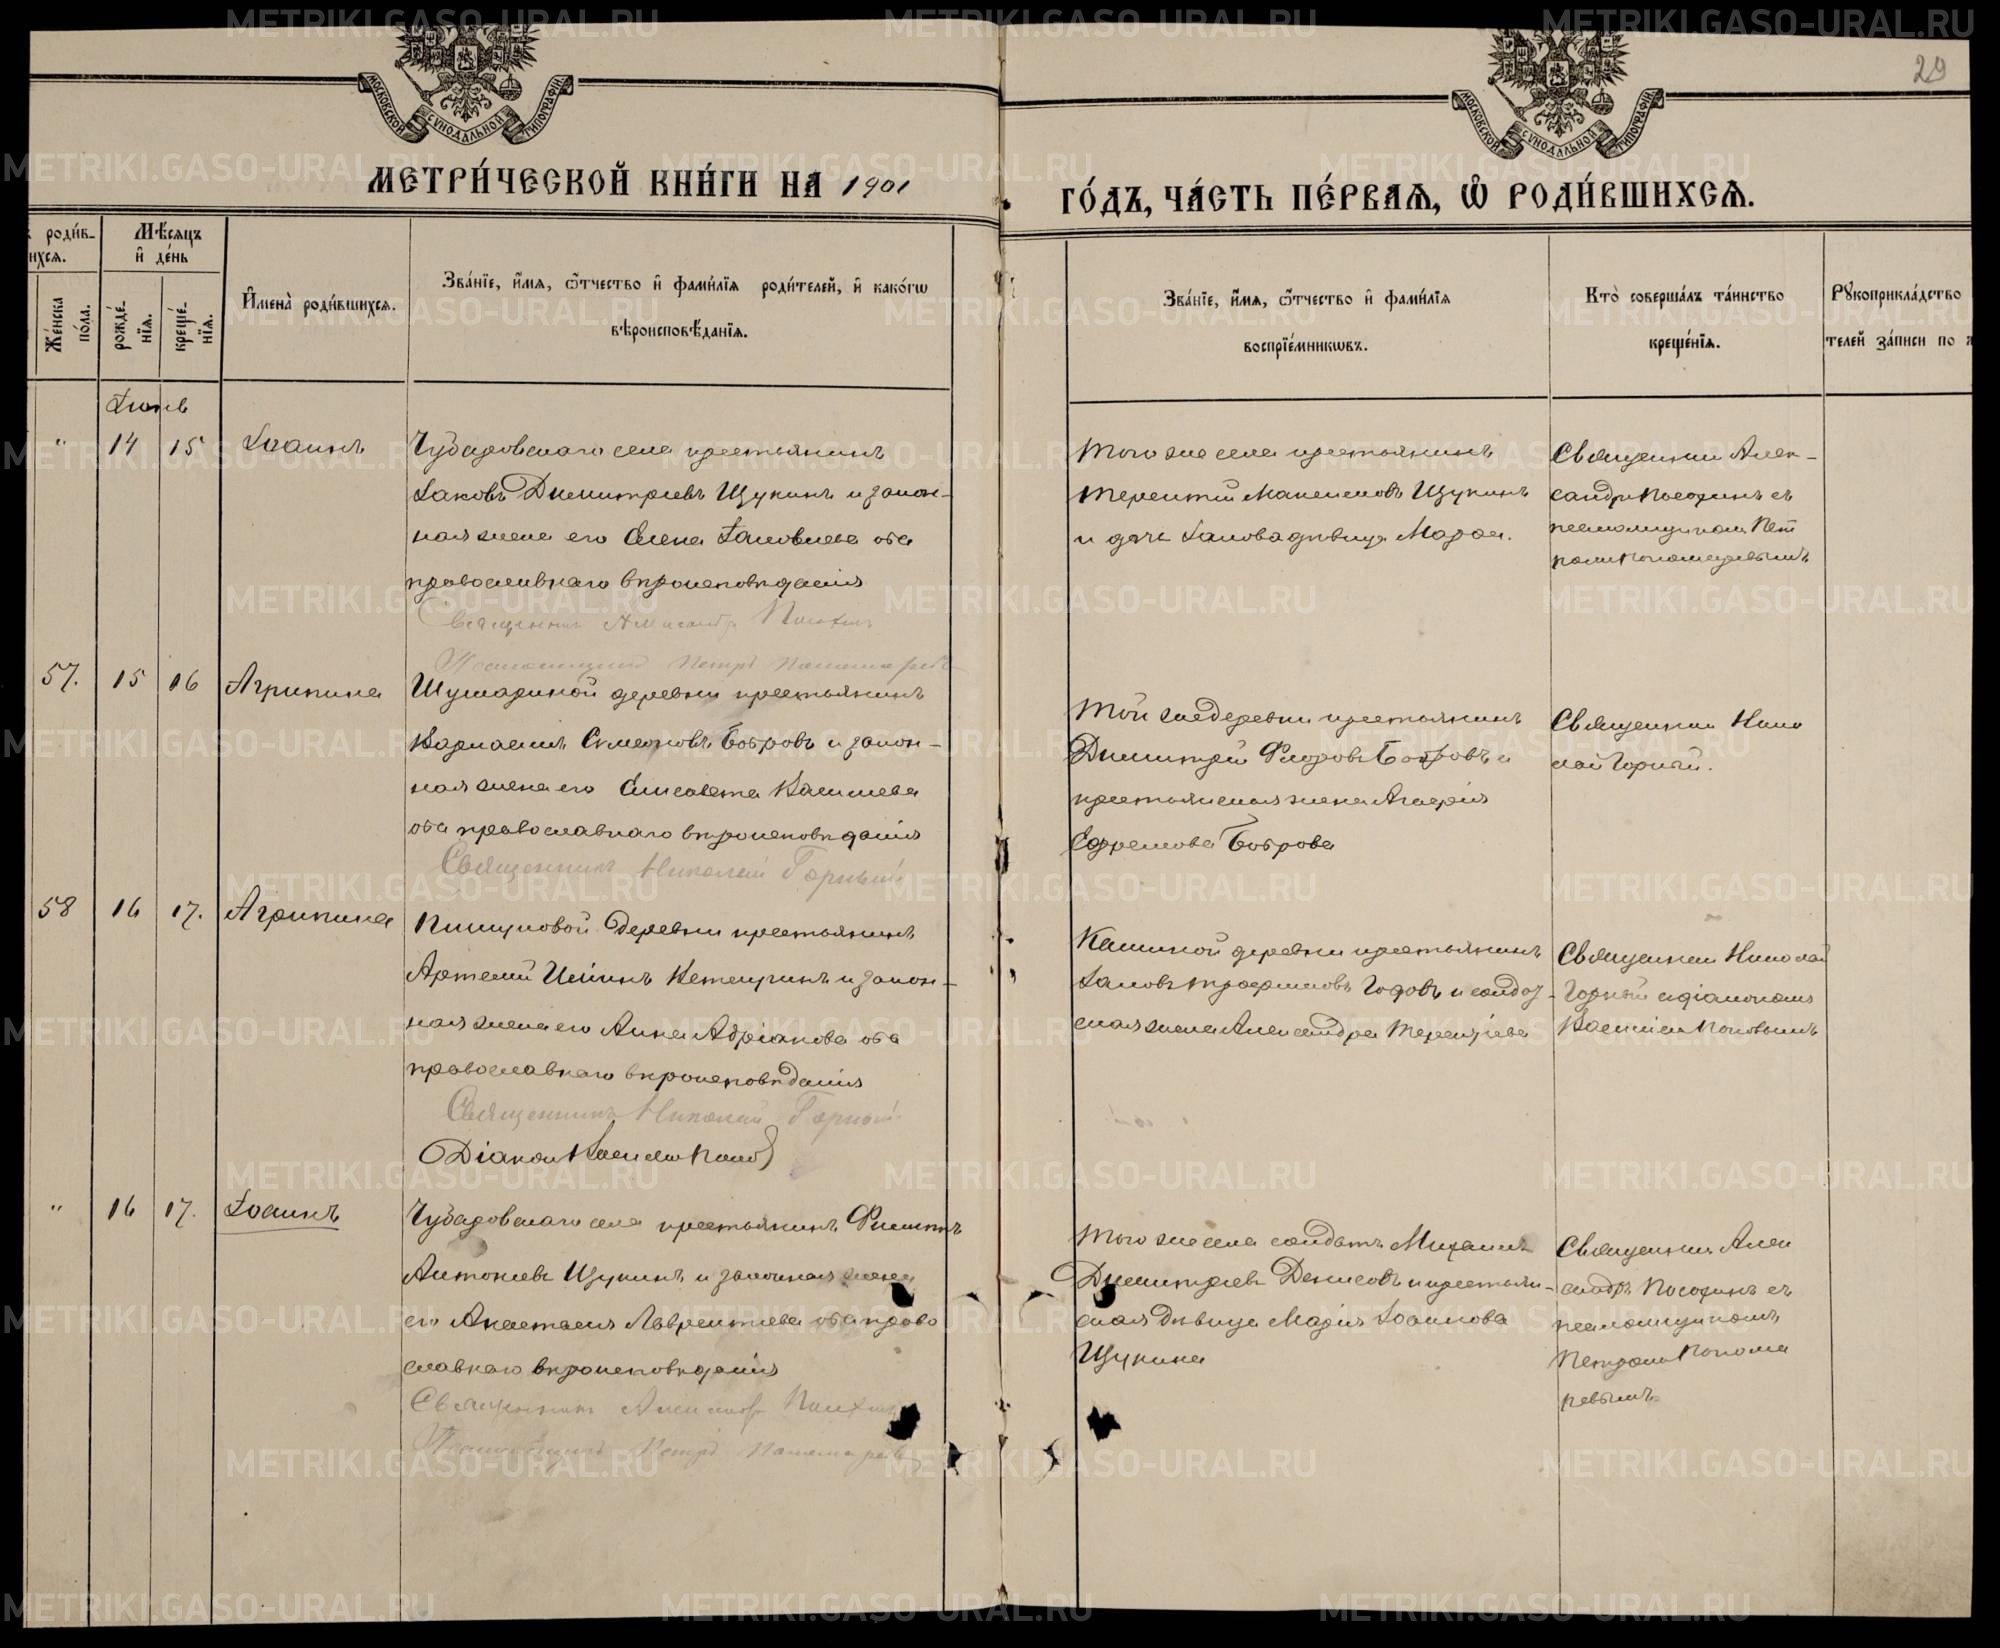 29
МОСКОВСКОЙ СѴНОДАЛЬНОЙ ТИПОГРАФІИ.
МОСКОВСКОЙ СѴНОДАЛЬНОЙ ТИПОГРАФІИ.
МЕТРИ́ЧЕСКОЙ КНИ́ГИ НА 1901
ГО́ДЪ, ЧА́СТЬ ПЕ́РВАѦ, Ѡ҆ РОДИ́ВШИХСѦ.
роди́в-
ихсѧ.
Же́нска по́ла.
Мѣ́сѧцъ и҆ де́нь
рожде́-нїѧ.
креще́-нїѧ.
И҆мена̀ роди́вшихсѧ.
Зва́нїе, и҆́мѧ, ѻ҆́тчество и҆ фамилїѧ роди́телей, и҆ како́гѡ
вѣроисповѣ́данїѧ.
Зва́нїе, и҆́мѧ, ѻ҆́тчество и҆ фамилїѧ
воспрїе́мникѡвъ.
Кто̀ соверша́лъ та́инство
креще́нїѧ.
Рꙋкоприкла́дство
телей за́писи по
Іюнь
" 14 15 Іоаннъ
Чубаровскаго села крестьянинъ
Іаковъ Димитріевъ Щукинъ и закон-
ная жена его Елена Іаковлева оба
православнаго вѣроисповѣданія
Священникъ Александръ Посохинъ
Псаломщикъ Петръ Пономаревъ
Того же села крестьянинъ
Терентій Максимовъ Щукинъ
и дочь Іакова дѣвица Марѳа.
Священник Алек-
сандръ Посохинъ съ
псаломщикомъ Пет
ромъ Пономаревымъ
57. 15 16 Агрипина
деревни крестьянинъ
Симеоновъ Бобровъ и закон-
ная жена его Елисавета
оба православнаго вѣроисповѣданія
Священникъ Николай Горный
Той же деревни крестьянинъ
Димитрій Флоровъ Бобровъ и
крестьянская жена
Ефремова Боброва
Священник Нико
лай Горный.
58 16 17. Агрипина
деревни крестьянинъ
Артемій и закон-
ная жена его Анна Адріанова оба
православнаго вѣроисповѣданія
Священникъ Николай Горный
Діакон Василій Попов
Кашиной деревни крестьянинъ
Іаковъ Трофимовъ Годовъ и солдат-
ская жена Александра Терентіева
Священник Николай
Горный с діакономъ
Василіем Поповымъ
" 16 17. Іоаннъ
Чубаровскаго села крестьянинъ Филиппъ
Антоніевъ Щукинъ и законная жена
его Анастасія Лаврентіева оба право
славнаго вѣроисповѣданія
Священникъ Александръ Посохинъ
Псаломщикъ Петръ Пономаревъ
Того же села солдатъ Михаилъ
Димитріевъ Денисовъ и крестьян-
ская дѣвица Марія Іоаннова
Щукина
Священникъ Алек
сандръ Посохинъ съ
псаломщикомъ
Петромъ Понома
ревымъ.
METRIKI.GASO-URAL.RU